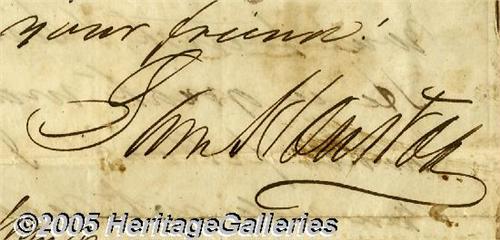 your friend!
Sam Houston
©2005 HeritageGalleries